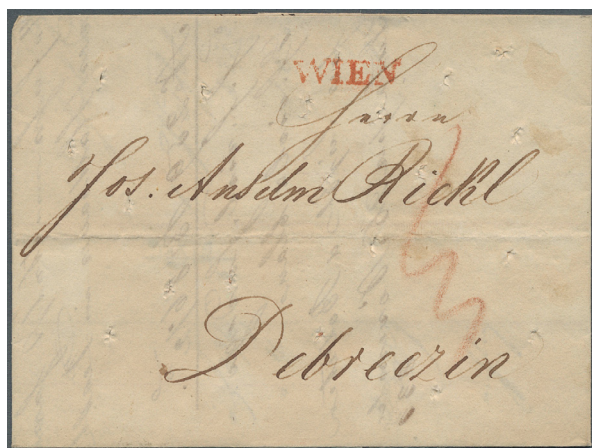 WIEN
Herrn
Jos. Anselm Rickl
Debreczin